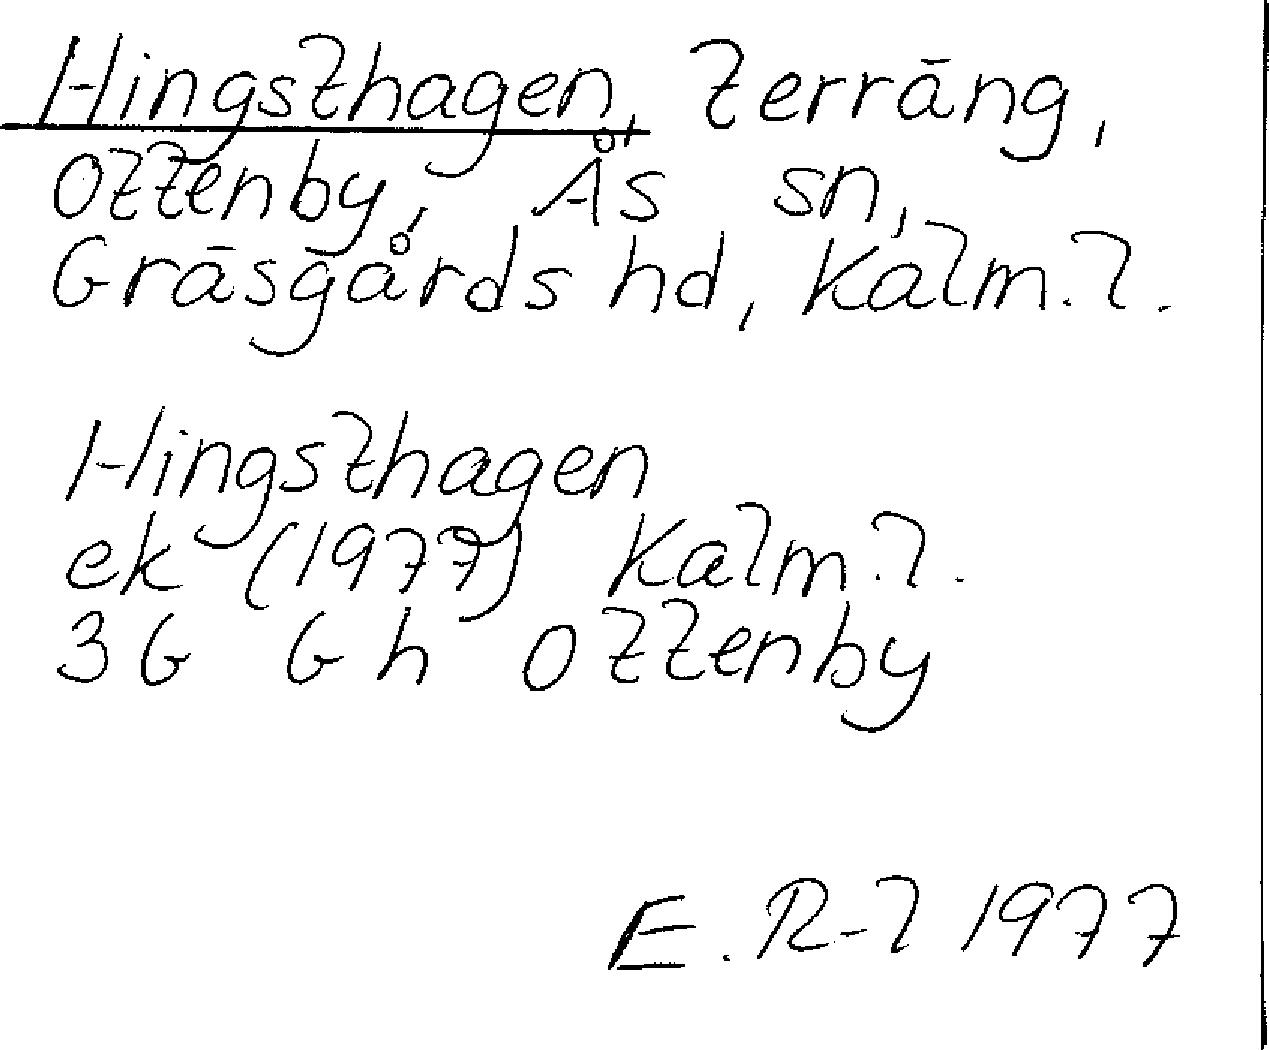 Hingsthagen, terräng,
Ottenby, Ås sn,
Gräsgårds hd, Kalm.l.
Hingsthagen
ek (1977) Kalm.l.
3G Gh Ottenby
E. R-l 1977